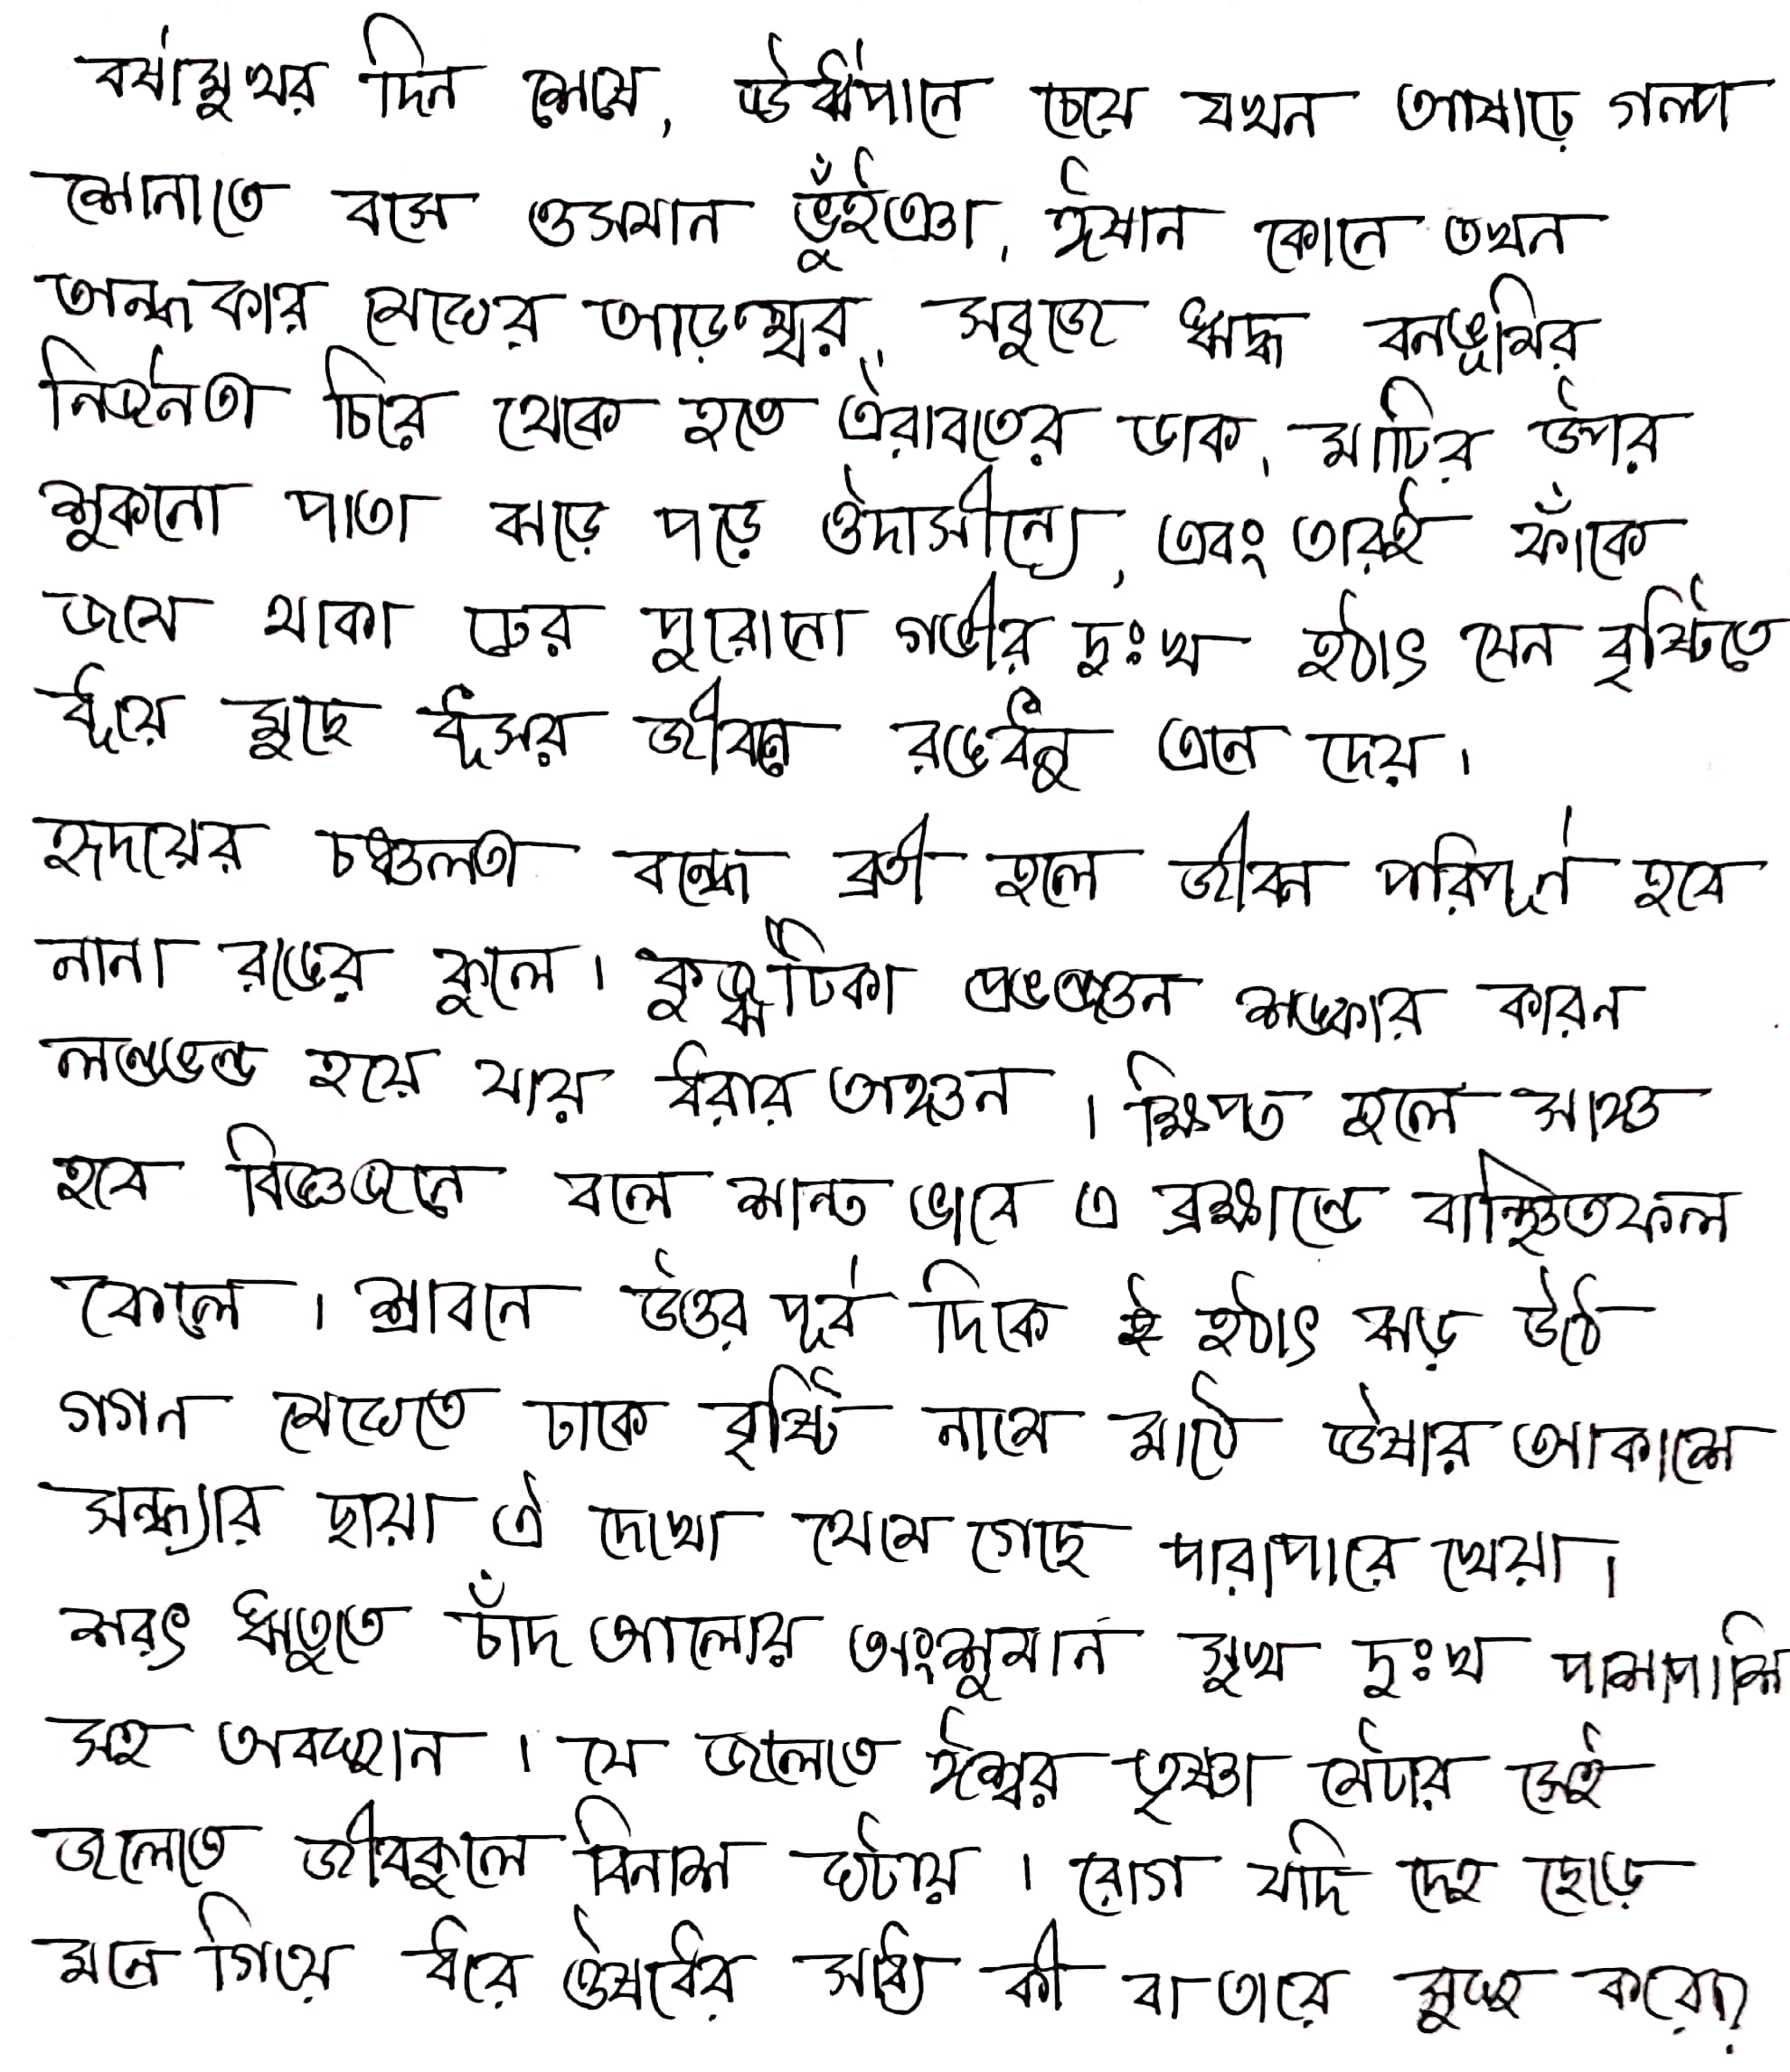 বর্ষামুখর দিন শেষে, ঊর্ধ্বপানে চেয়ে যখন আষাঢ়ে গল্প
শোনাতে বসে ওসমান ভুঁইঞা, ঈষান কোনে তখন
অন্ধকার মেঘের আড়ম্বর, সবুজে ঋদ্ধ বনভূমির
নির্জনতা চিরে থেকে হতে ঐরাবতের ডাক, মাটির উপর
শুকনো পাতা ঝড়ে পড়ে ঔদাসীন্যে, এবং তারই ফাঁকে
জমে থাকা ঢের পুরোনো গভীর দুঃখ হঠাৎ যেন বৃষ্টিতে
ধূয়ে মুছে ধূসর জীবনে রঙধনু এনে দেয়।
হৃদয়ের চঞ্চলতা বন্ধে ব্রতী হলে জীবন পরিপূর্ন হবে
নানা রঙের ফুলে। কুজ্ঝটিকা প্রভঞ্জন শঙ্কার কারন
লণ্ডভণ্ড হয়ে যায় ধরার অঙ্গন। ক্ষিপ্ত হলে সাঙ্গ
হবে বিজ্ঞজনে বলে শান্ত ভাবে এ ব্রহ্মান্ডে বাঞ্ছিতফল
ফেলে। শ্রাবনে উত্তর পূর্ব দিকে হঠাৎ ঝড় উঠে
গগন মেঘেতে ঢাকে বৃষ্টি নামে মাঠে ঊষার আকাশে
সন্ধ্যার ছায়া ঐ দেখো থেমে গেছে পারাপারে খেয়া।
শরৎ ঋতুতে চাঁদ আলোয় অংশুমান সুখ দুঃখ পাশাপাশি
সহ অবস্থান। যে জলেতে ঈশ্বর তৃষ্ণা মেটায় সেই
জলেতে জীবকুলে বিনাশ ঘটায়। রোগ যদি দেহ ছেড়ে
মনে গিয়ে ধরে ঔষধের সাধ্য কী বা তারে সুস্থ করে?